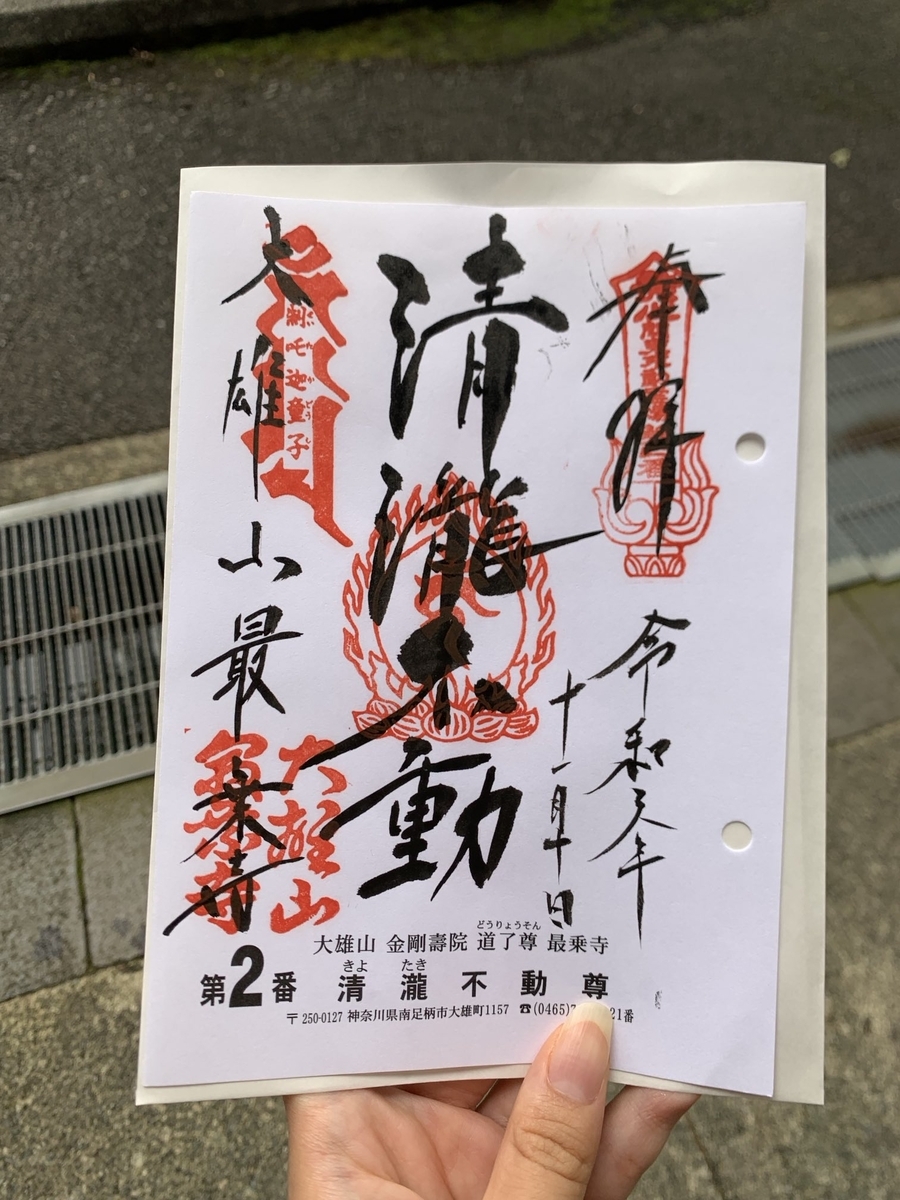 奉拝
令和元年
十一月十日
清瀧不動
大雄山最乗寺
矜吒迦童子
大雄山
最乗寺
どうりょうそん
大雄山 金剛壽院 道了尊 最乗寺
きよ たき
第2番 清瀧不動尊
〒250-0127 神奈川県南足柄市大雄町1157 ☎(0465)7 21番